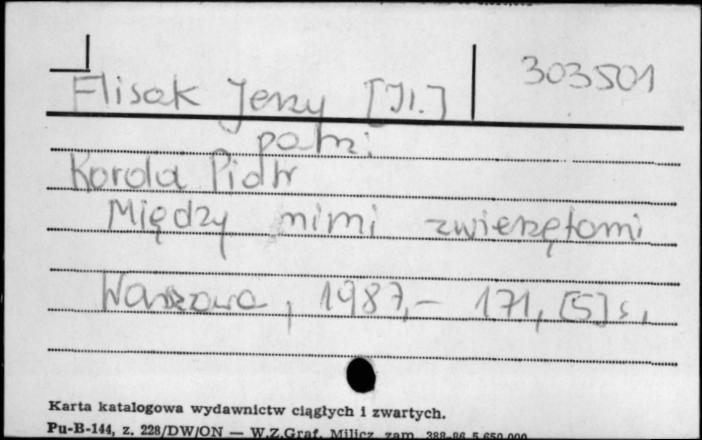 Flisak Jerzy [Il.] 303501
patrz:
Korda Piotr
Między nimi zwierzętami
Warszawa, 1987,- 171, [5] s.,
Karta katalogowa wydawnictw ciągłych i zwartych.
Pu-B-144, z. 228/DW/ON — W.Z.Graf. Milicz, zam. 388-86 5.650.000